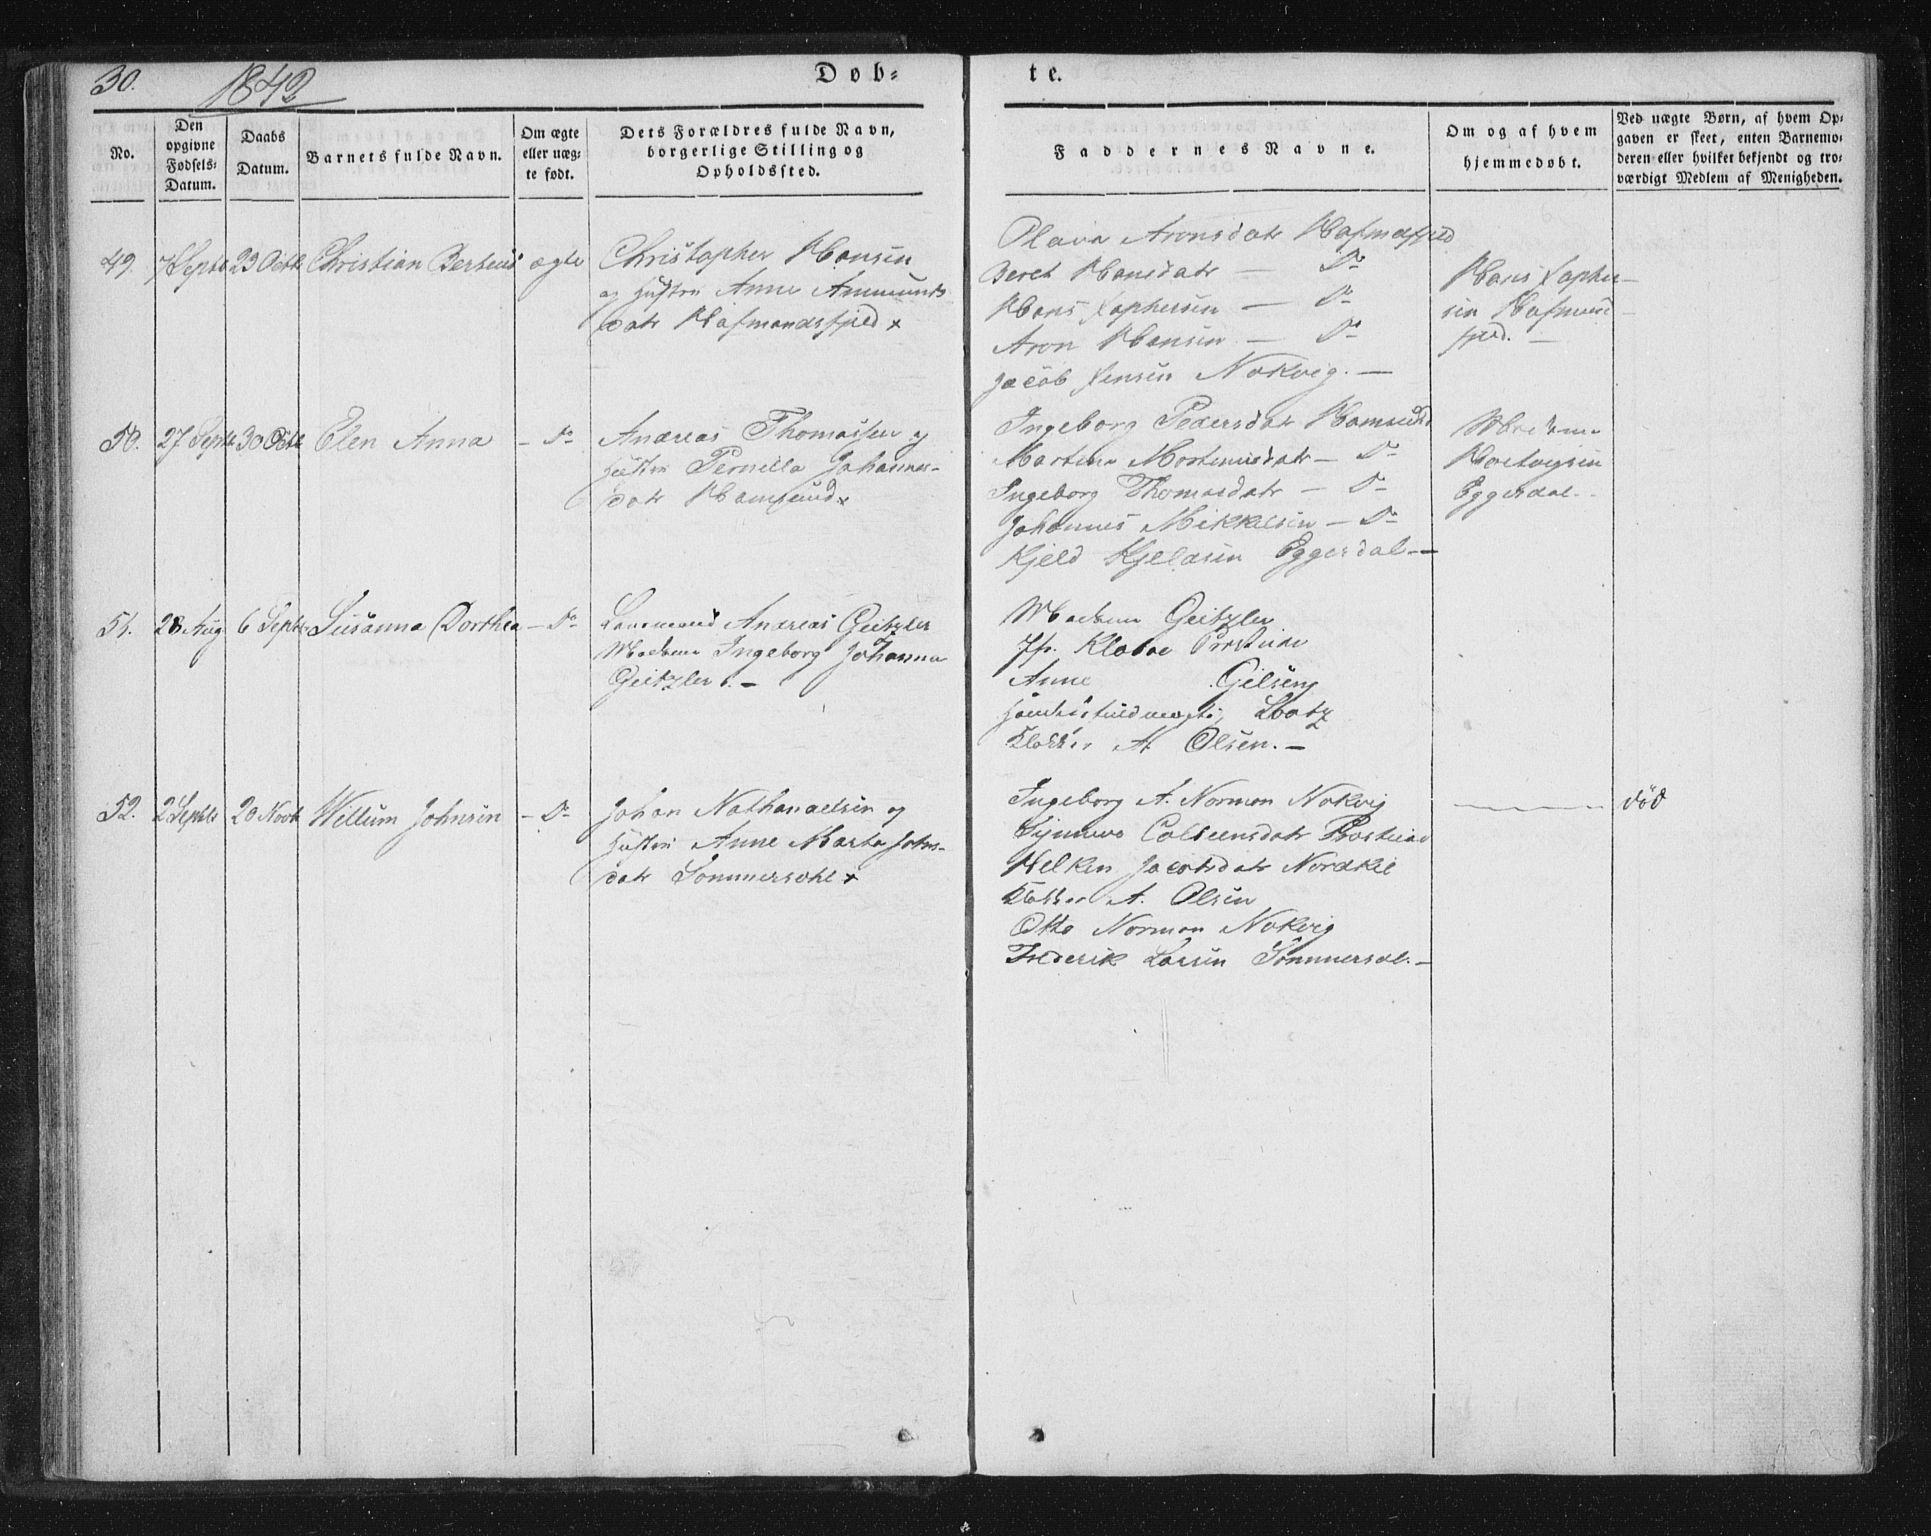 30.
1842
Døb=
te.
No.
Den
opgivne
Fødsels-
Datum.
Daabs
Datum.
Barnets fulde Navn.
Om ægte
eller uæg-
te født.
Dets Forældres fulde Navn,
borgerlige Stilling og
Opholdssted.
Faddernes Navne.
Om og af hvem
hjemmedøbt.
Ved uægte Børn, af hvem Op-
gaven er skeet, enten Barnemo-
deren eller hvilket bekjendt og tro-
værdigt Medlem af Menigheden.
49. 7 Septb 23 Octb Christian ægte
Christopher Hansen
og Hustru Anne
datr Hafmandsfjeld x
Olava Aronsdatr Hafmafjeld
Beret Hansdatr — Do
Hans — Do
Aron Hansen — Do
Jacob Jensen Nokvig. —
Hans
sen Hafmand
fjeld. —
50. 27 Septb 30 Octb Elen Anna — Do
Andreas Thomassen og
Hustru Pernilla Johannes-
datr Hamsund x
Ingeborg Pedersdatr Hamsund
Martina datr — Do
Ingeborg Thomasdatr — Do
Johannes Mikkelsen — Do
Kjeld Kjeldsen Eggesdal —
Eggesdal. -
51. 28 Aug 6 Septb Susanna Dorthea — Do
Andreas Geitzler
Madame Ingeborg Johanna
Geitzler. —
Madame Geitzler
Jf. Klaboe
Anne
Klokker A Olsen. —
52. 2 Septb 20 Novb Willum Johnsen — Do
Johan Nathanaelsen og
Hustru Anne Marta Johns-
datr Sommersæhl x
Ingeborg A. Norman Nokvig
datr
Helken Jacobsdatr Nordkil
Klokker A. Olsen
Otto Norman Nokvig
Frederik Larsen Sommersæl. —
død